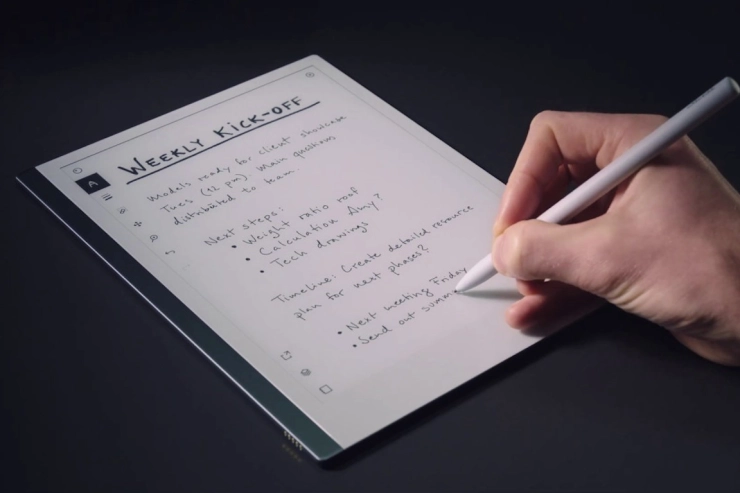 WEEKLY KICK-OFF
A
Models ready for client showcase
Tues (12 pm). Main questions
distributed to team.
Next steps:
• Weight ratio roof
• Calculation Amy?
• Tech drawings
Timeline: Create detailed resource
plan for next phases?
• Next meeting Friday
• Send out summa